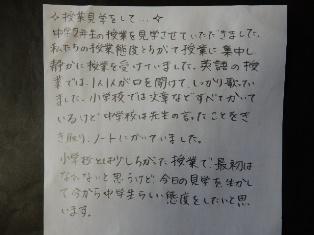 ☆授業見学をして…☆
中学2年生の授業を見学させていただきました。
私たちの授業態度とちがて授業に集中し
静かに授業を受けていました。英語の授
業では、1人1人が口を開けて、しっかり歌ってい
ました。小学校では文章などすべてかいて
いるけど中学校は先生の言ったことをき
き取り、ノートにかいていました。
小学校とは少しちがった授業で最初は
なれないと思うけど、今日の見学を生かし
て今から中学生らしい態度をしたいと思
います。